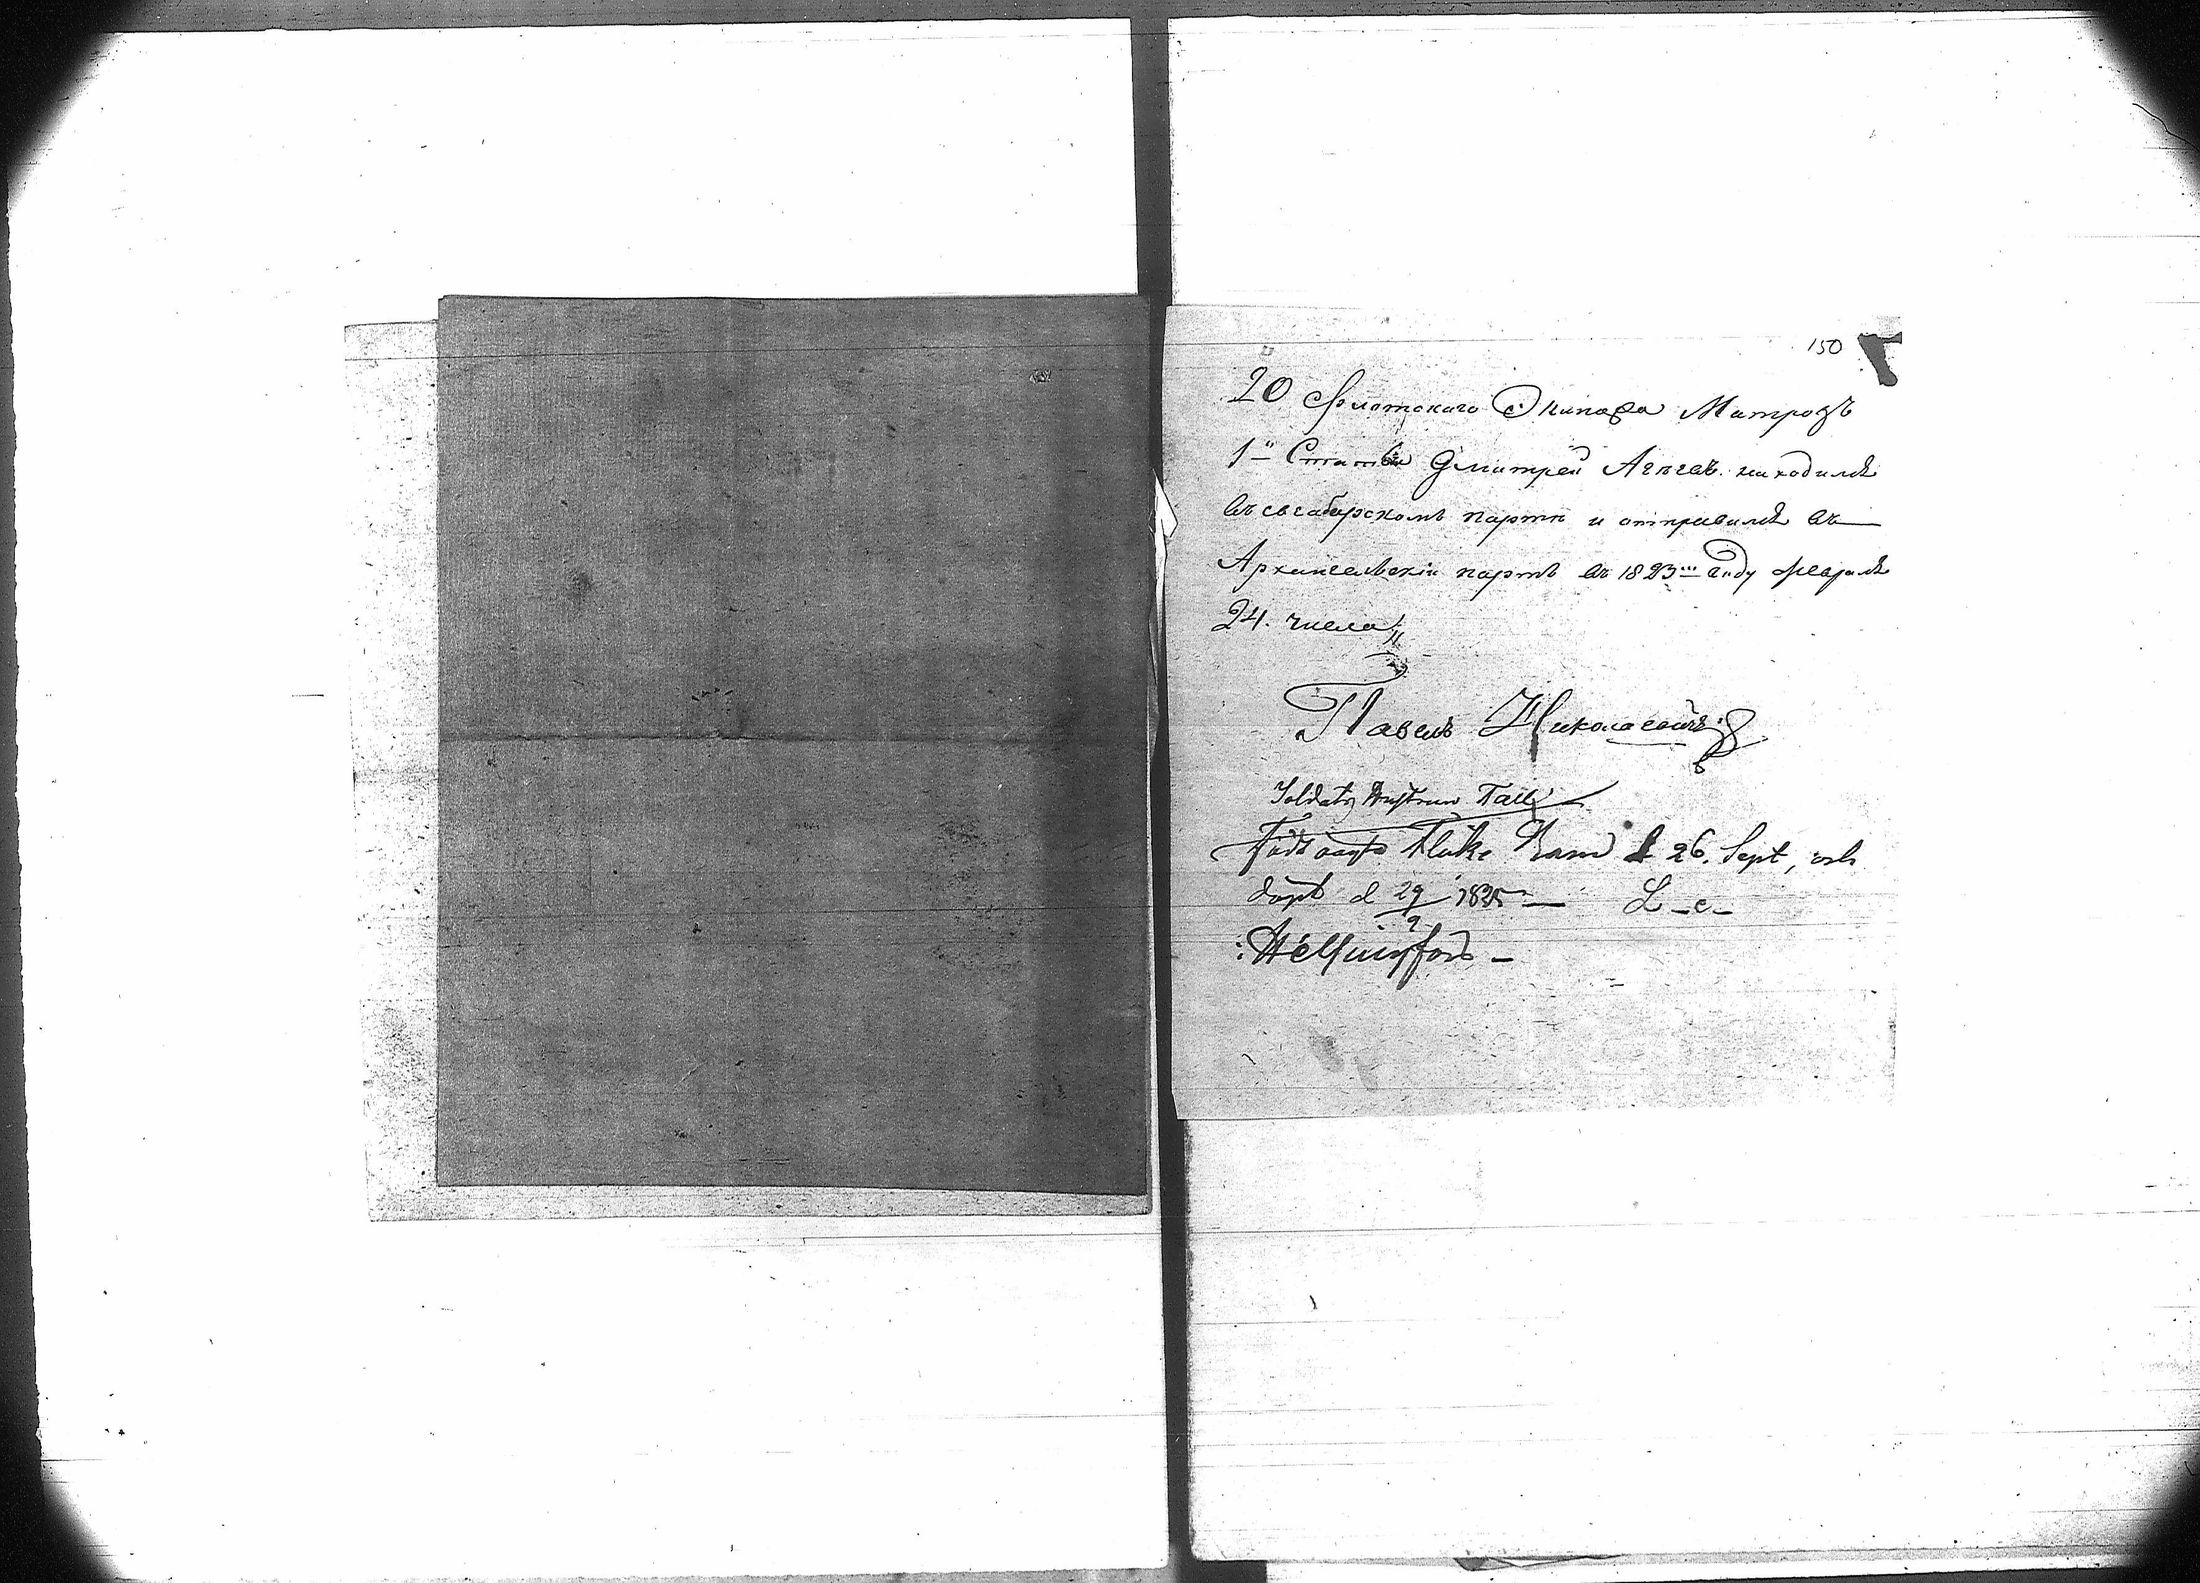 150
20 Флотскаго Экипажа Матрозъ
1й Статьи Дмитрей Агѣевъ находилсѧ
въ свеаборскомъ партѣ и отправилсѧ въ
Архангельскiй партъ въ 1823 году Февралѧ
24. числа
Павелъ Николаевичъ
Soldats Hustrun
Födt Flicke Barn d 26. Sept, och
döpt d 29/9 1835 — L – c –
Helsingfors –